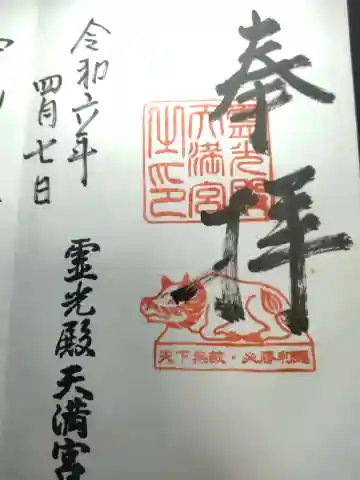 奉拝
霊光殿
天満宮
之印
天下無敵・必勝利運
霊光殿天満宮
令和六年
四月七日